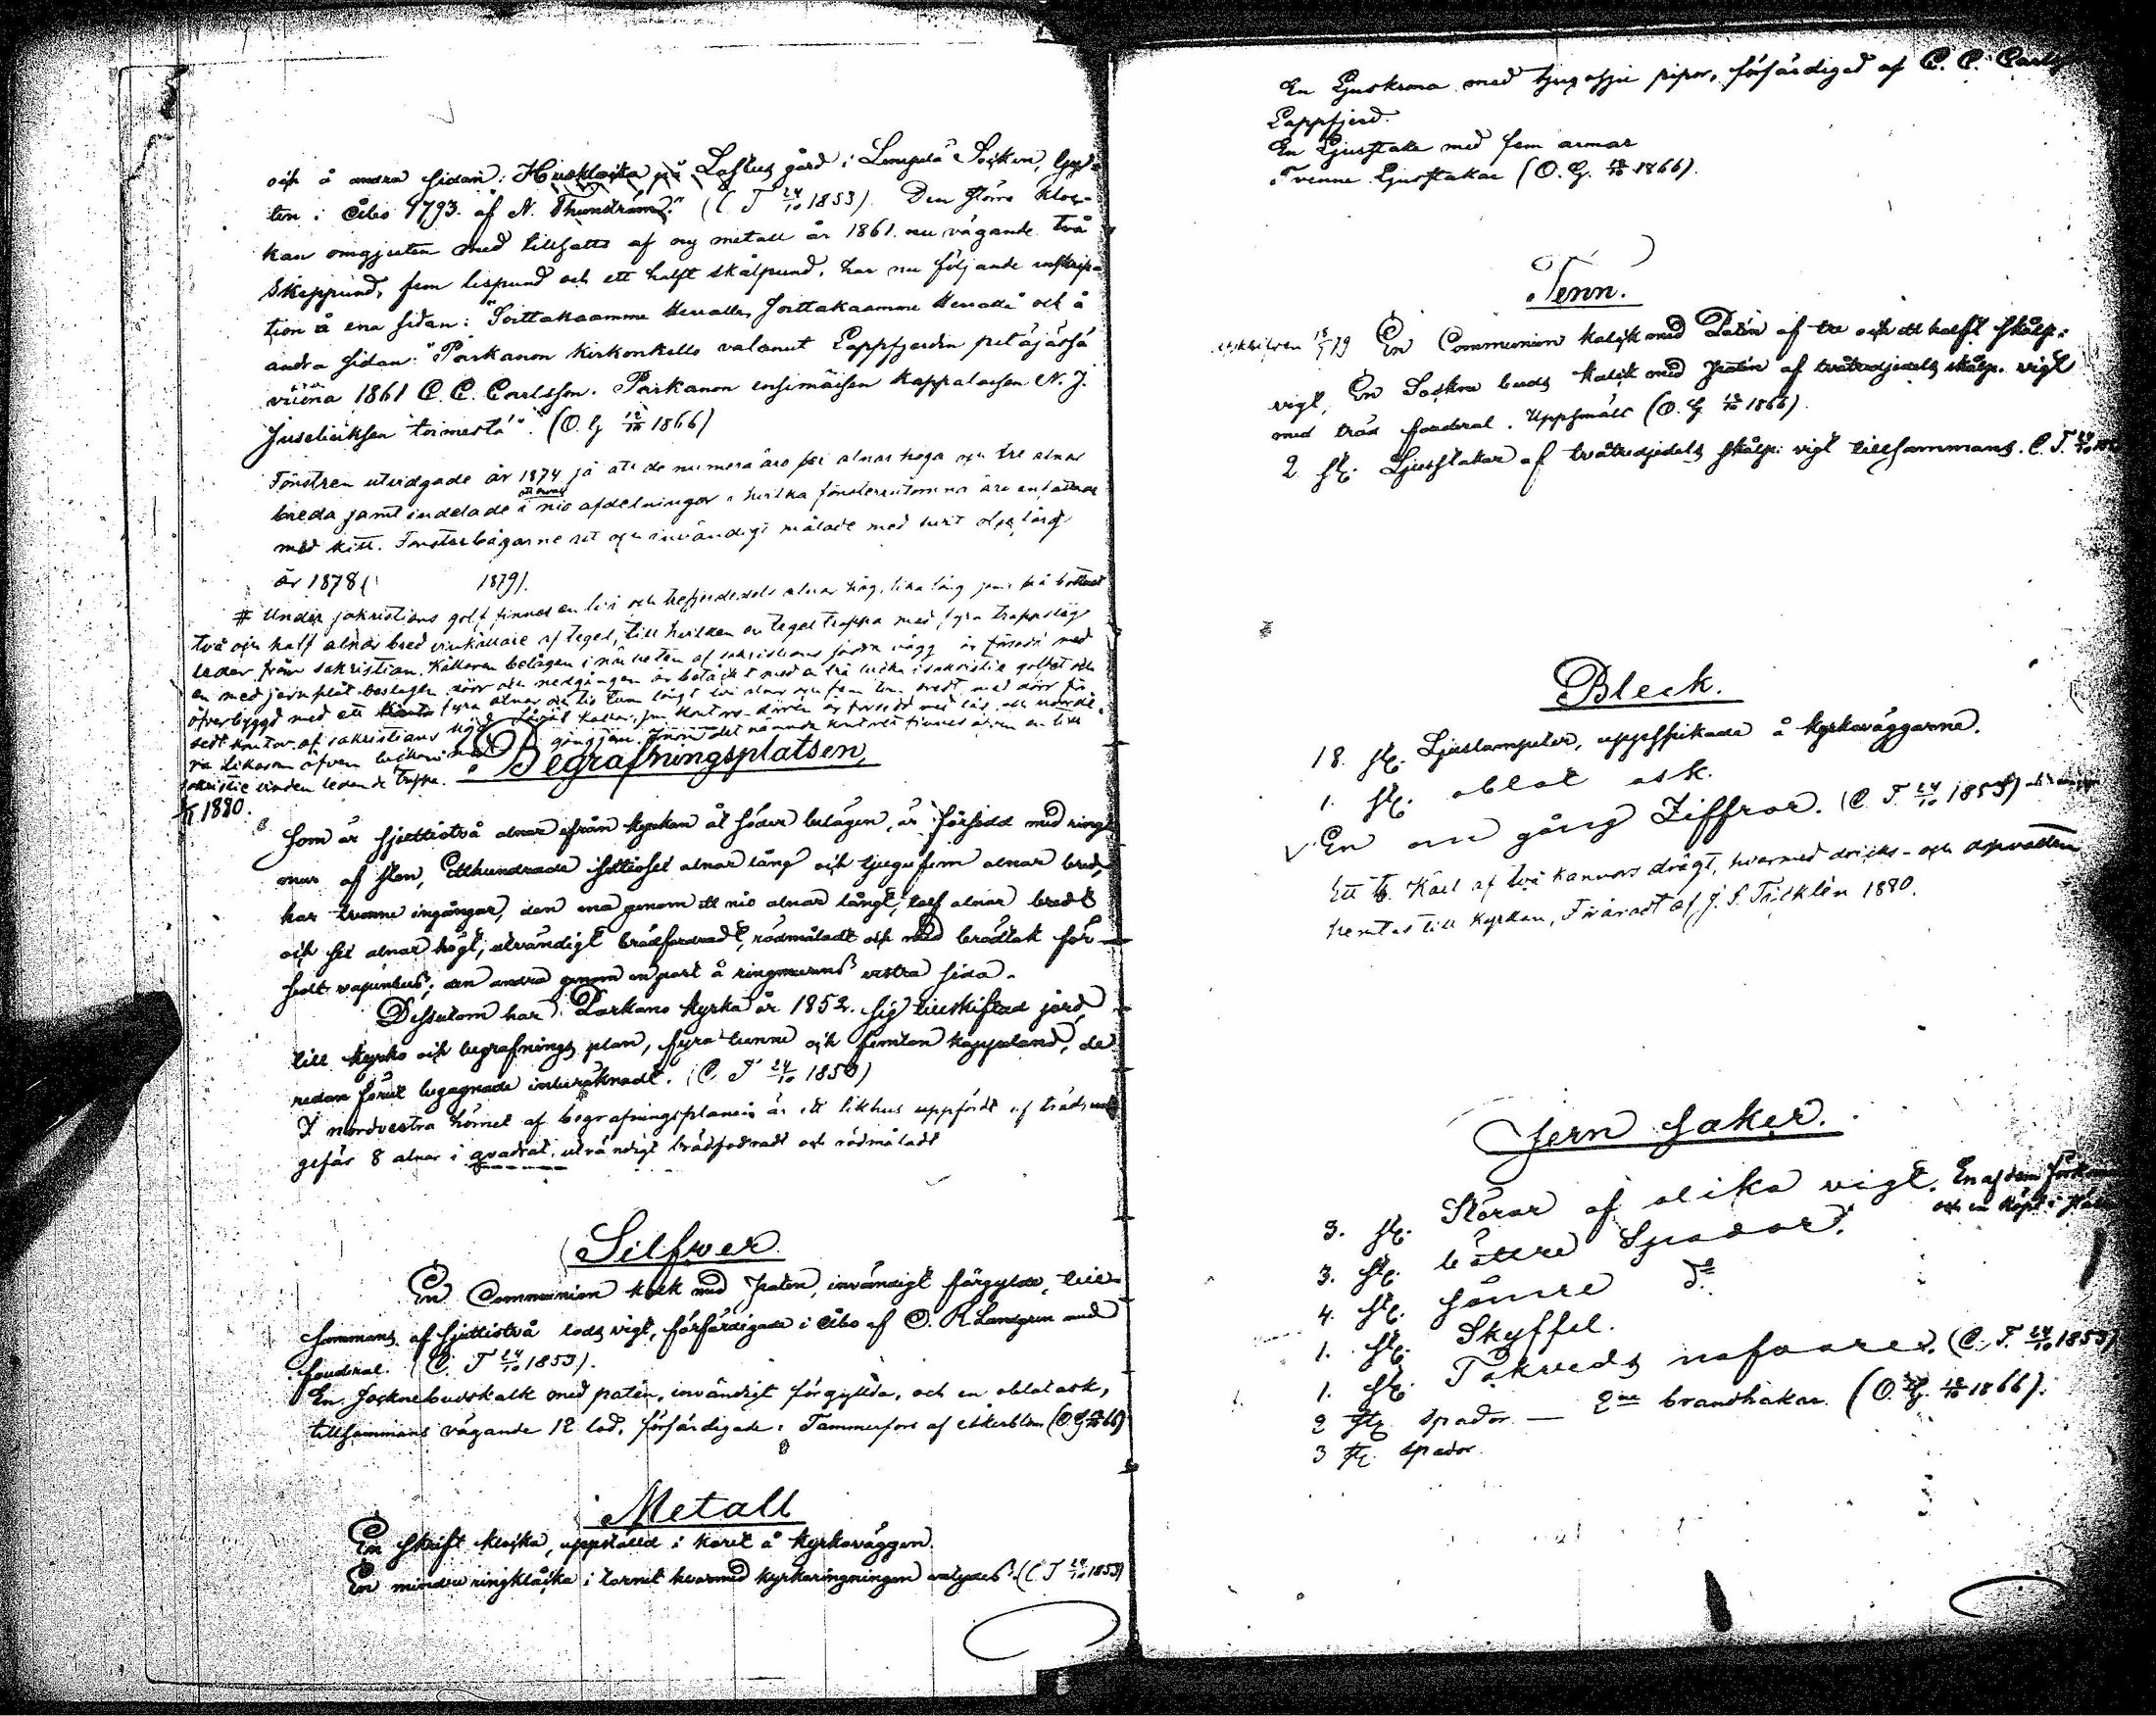 och å andra sidan: Husklocka på Laskus gård i Lempelä Socken, Guj-
ten i Åbo 1793. af N. Thunström." (C. T 24/10 1853). Den större kloc-
kan omgjuten med tillsatts af ny metall år 1861. nu vägande två
Skeppund, fem lispund och ett halft skålpund, har nu följande inskrip-
tion å ena sidan: "Soittakaamme Herralle, Soittakaamme Herrade" och å
andra sidan: "Parkanon kirkonkello valanut Lappfjerdin pitäjässä
vuona 1861 C. C. Carlsson. Parkanon ensimäisen Kappalaisen N. J.
Juseliuksen toimesta". (O. G 12/10 1866)
Fönstren utvidgade år 1874 så att de numera äro sex alnar höga och tre alnar
breda samt indelade i nio afdelningar i hvilka fönsterrutorna äro
med kitt. Fönsterbågarne ut och invändigt målade med hvit oljefärg
år 1878 ( 1879).
# Under sakristians golf finnes en två och trefjerdedels alnar hög, lika lång samt på bottnen
två och half alnar bred vinkällare af tegel, till hvilken en tegel trappa med fyra trappsteg
leder från sakristian. Källaren belägen i närheten af sakristians södra vägg är försedd med
en med jernplåt beslagen dörr och nedgången är betäckt med en trä lucka i sakristie golfvet och
öfverbyggd med ett fyra alnar och tio tum långt två alnar och fem tum bredt med dörr för-
sedt kontor af sakristians höjd.
ra likasom äfven luckan med gångjern. Inom det nämnde kontoret finnes äfven en till
sakristie vinden ledande trappa.
1880.
Begrafningsplatsen,
Som är sjuttiotvå alnar från kyrkan åt söder belägen, är försedd med ring-
mur af sten, Etthundrade sextiosex alnar lång och tjugufem alnar bred,
har tvenne ingångar, den ena genom ett nio alnar långt, tolf alnar bredt
och sex alnar högt, utvändigt brädfordradt, rödmåladt och med brädtak för-
sedt vapenhus; den andra genom en port å ringmurens vestra sida.
Dessutom har Parkano kyrka år 1852. sig tillskiftad jord,
till kyrko och begrafnings plan, fyra tunne och femton kappeland, de
redan förut begagnade inberäknadt. (C. T 24/10 1853)
I nordvestra hörnet af begrafningsplanen är ett likhus uppfördt af träd, un-
gefär 8 alnar i qvadrat, utvändigt brädfodradt och rödmåladt
Silfwer.
En Communion kalk med Paten, invändigt förgylda, till-
sammans af sjuttiotvå lods vigt, förfärdigade i Åbo af O. R Landgren med
fouderal. (C. T 24/10 1853).
En Socknebudskalk med patén, invändigt förgyllda, och en oblatask,
tillsammans vägande 12 lod, förfärdigade i Tammerfors af Åkerblom (O. G 12/10 66)
Metall
En Skrift klocka, uppställd i koret å kyrkoväggen.
En mindre ringklocka i tornet hvarmed kyrkoringningen antydes. (C T 24/10 1853)
En Ljuskrona med tjugosju pipor, förfärdigad af C. C. Carls
Lappfjerd.
En Ljusstake med fem armar
Tvenne Ljusstakar (O. G. 12/10 1866).
Tenn.
En Communion kalk med Patén af tre och ett halft skålp:
vigt, En Sockne buds kalk med Patén af tvåtredjedels skålp. vigt
med träd fouderal. Uppsmält (O. G 12/10 1866).
2 st. Ljusstakar af tvåtredjedels skålp: vigt tillsammans. C. T. 24/10
Bleck.
18. st. Ljuslampeter, uppspikade å kyrkoväggarne.
1. st. oblat ask.
En om gång Ziffror. (C. T. 24/10 1853)
Ett Kärl af två kannors drägt, hvarmed dricks- och dopvatten
hemtas till kyrkan, Föräradt af J. S. Träcklin 1880.
Jern saker.
3. st. Störar af olika vigt. En af dem
och en köpt i
3. st. bättre Spador.
4. st. sämre do
1. st. Skyffel.
1. st. Takveds nafvare. (C. T. 24/10 1853)
2 st. spador. — 2ne brandhakar. (O. G. 12/10 1866).
3 st. spador.